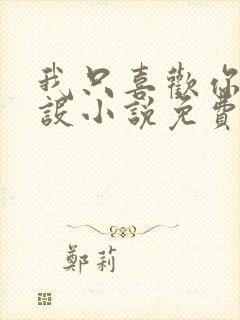 我只喜歡你
設小說免費
鄭莉